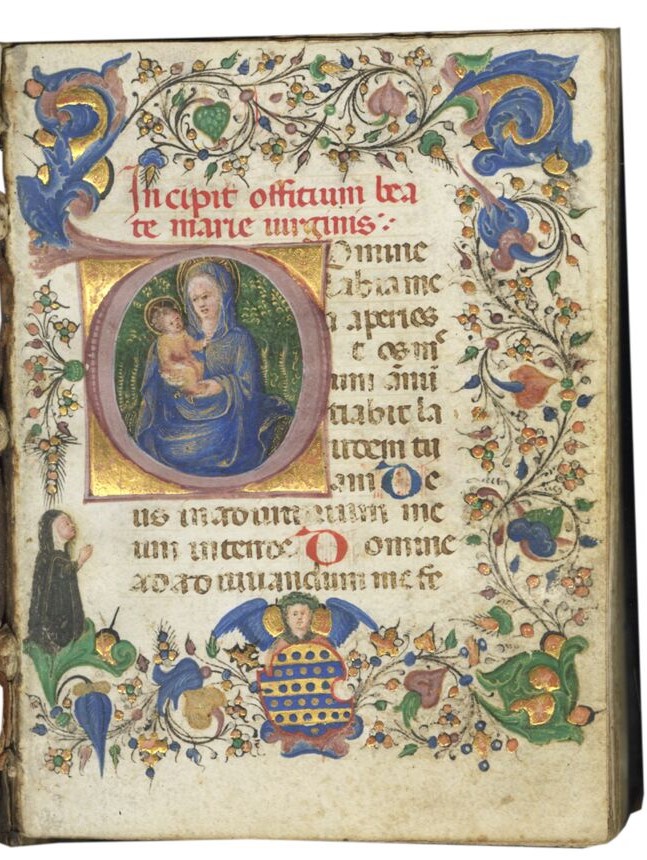 Incipit offitium bea
te marie uirginis
Domine
labia me
a aperies
et os m
um annũ
tiabit la
udem tu
am De
us in adiutorium me
um intende Domine
ad adiuuandum me fe